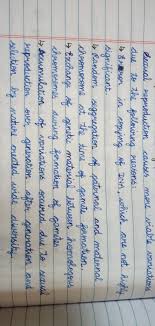 Sexual reproduction causes more viable variations
due to the following reasons:
↳ Error in copying of DNA, which are not highly
significant.
↳ Random segregation of paternal and maternal
chromosomes at the time of gamete formation
↳ Exchange of genetic material between homologous
chromosomes during formation of gametes.
↳ Accumulation of variations occured due to sexual
reproduction over generation after generation and
selection by nature created wide diversity.